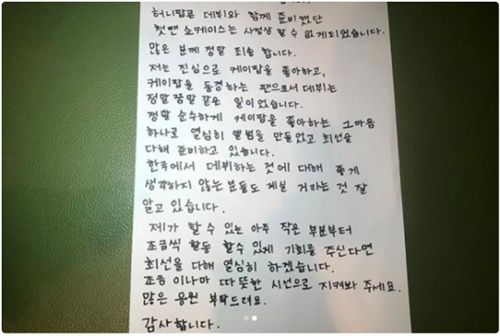 허니팝콘 데뷔와 함께 준비했던
첫팬 쇼케이스는 사정상 할 수 없게되었습니다.
많은 분께 정말 죄송 합니다.
저는 진심으로 케이팝을 좋아하고,
케이팝을 동경하는 팬으로서 데뷔는
정말 꿈만 같은 일이었습니다.
정말 순수하게 케이팝을 좋아하는 그마음
하나로 열심히 앨범을 만들었고 최선을
다해 준비하고 있습니다.
한국에서 데뷔하는 것에 대해 좋게
생각하지 않는 분들도 계실 거라는 것 잘
알고 있습니다.
제가 할 수 있는 아주 작은 부분부터
조금씩 활동 할수 있게 기회를 주신다면
최선을 다해 열심히 하겠습니다.
조금 이나마 따뜻한 시선으로 지켜봐 주세요.
많은 응원 부탁드려요.
감사합니다.